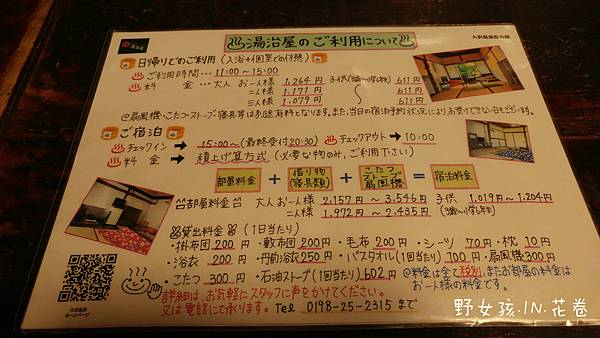 大沢温泉湯治屋
湯治屋のご利用について
日帰りでのご利用(入浴+個室での休憩)
ご利用時間・・・11:00~15:00
料 金・・・大人 お一人様 1,264円 子供(3歳~小学6年生) 611円
二人様 1,171円 611円
三人様 1,079円 611円
@扇風機・こたつ・ストーブ・寝具等は別途有料となります。また、当日の宿泊予約状況によりお受けできない日もございます。
ご宿泊
チェックイン 15:00~(最終受付20:30) チェックアウト 10:00
料 金 積上げ算方式(必要な物のみ、ご利用下さい)
部屋料金 + 借り物(寝具類) + こたつ ストーブ 扇風機 = 宿泊料金
部屋料金 大人お一人様 2,157~3,546円 子供 1,019円~1,204円
二人様 1,972円~2,435円 (3歳~小学6年生)
貸出料金 (1日当たり)
・掛布団 200円 ・敷布団 200円 ・毛布 200円 ・シーツ 70円 ・枕 10円
・浴衣 200円 ・丹前浴衣 250円 ・バスタオル(1回当たり) 100円 ・扇風機 300円
・こたつ 300円 ・石油ストーブ(1回当たり) 602円 @料金は全て税別、またお部屋の料金は
お一人様の料金です。
詳細は、お気軽にスタッフに声をかけてください。
又は電話にて承ります。Tel 0198-25-2315 まで
大沢温泉
ホームページ
野女孩.IN.花卷